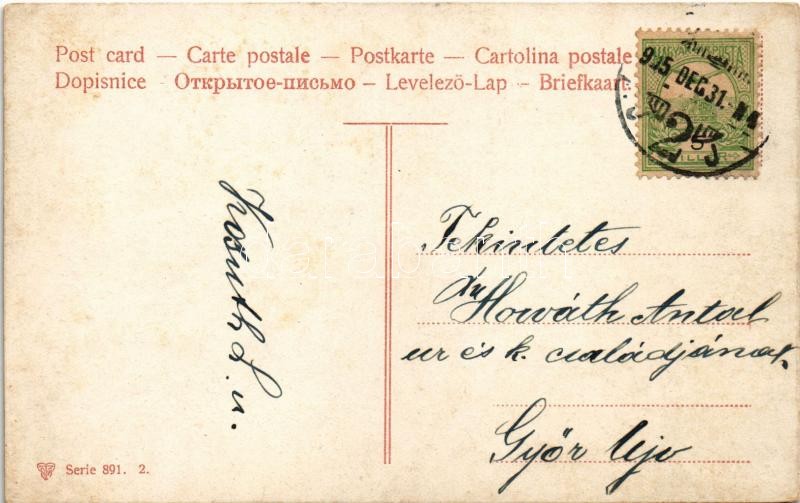 Post card — Carte postale — Postkarte — Cartolina postale
Dopisnice — Открытое-письмо — Levelező-Lap — Briefkaart.
MAGYAR KIR. POSTA
915 DEC 31.
Tekintetes
Dr Horváth Antal
ur és k. családjának
Győr
Serie 891. 2.